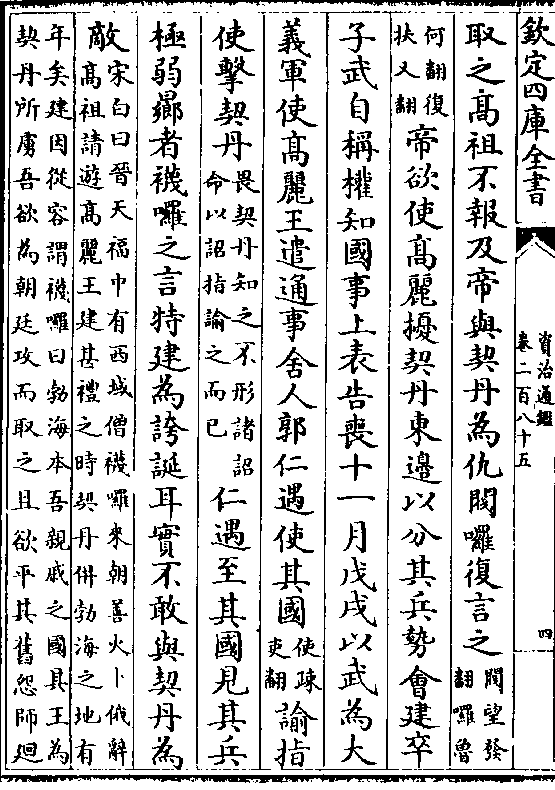 欽定四庫全書
資治通鑑
卷二百八十五
四
取之髙祖不報及帝與契丹為仇閲囉復言之閲望發翻囉魯
何翻復扶又翻帝欲使髙麗擾契丹東邊以分其兵勢會建卒
子武自稱權知國事上表告喪十一月戊戌以武為大
義軍使髙麗王遣通事舍人郭仁遇使其國使疎吏翻諭指
使擊契丹畏契丹知之不形諸詔命以詔指諭之而已仁遇至其國見其兵
極弱曏者襪囉之言特建為誇誕耳實不敢與契丹為
敵宋白曰晉天福中有西域僧襪囉來朝善火卜俄辭髙祖請遊髙麗王建甚禮之時契丹併勃海之地有
年矣建因從容謂襪囉曰勃海本吾親戚之國其王為契丹所虜吾欲為朝廷攻而取之且欲平其舊怨師廻